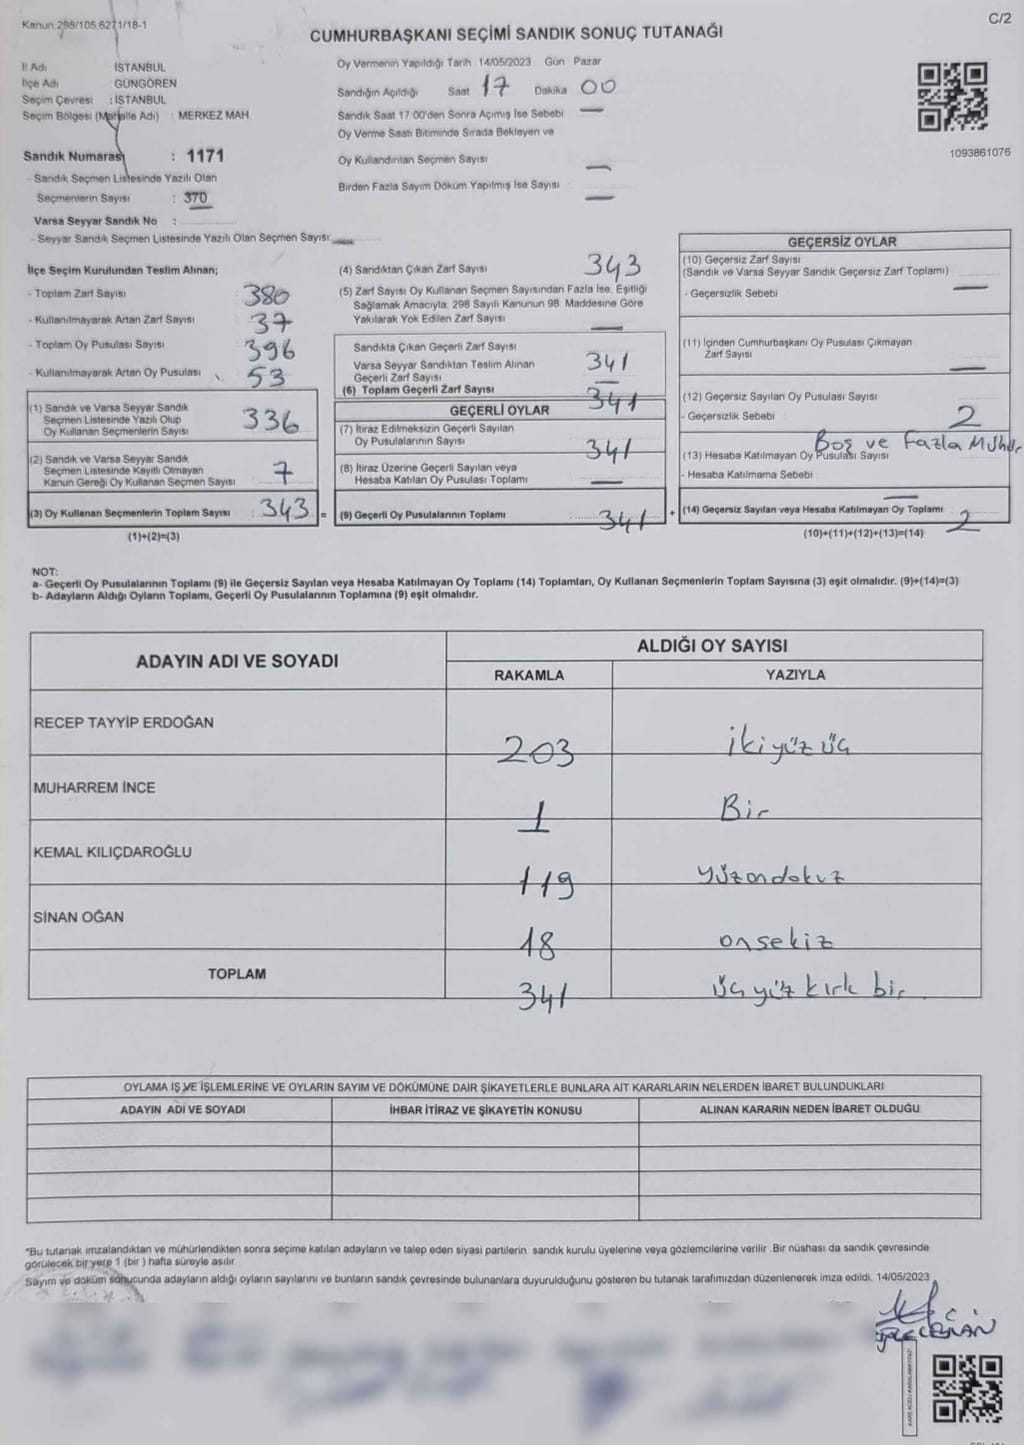 Kanun 298/105,6271/18-1
C/2
CUMHURBAŞKANI SEÇİMİ SANDIK SONUÇ TUTANAĞI
İl Adı İSTANBUL
İlçe Adı : GÜNGÖREN
Seçim Çevresi : İSTANBUL
Seçim Bölgesi (Mahalle Adı) : MERKEZ MAH.
Sandık Numarası : 1171
- Sandık Seçmen Listesinde Yazılı Olan
Seçmenlerin Sayısı : 370
Varsa Seyyar Sandık No :
- Seyyar Sandık Seçmen Listesinde Yazılı Olan Seçmen Sayısı :
Oy Vermenin Yapıldığı Tarih : 14/05/2023 Gün : Pazar
Sandığın Açıldığı Saat 17 Dakika 00
Sandık Saat 17:00'den Sonra Açımış İse Sebebi —
Oy Verme Saati Bitiminde Sırada Bekleyen ve
Oy Kullandırılan Seçmen Sayısı —
Birden Fazla Sayım Döküm Yapılmış İse Sayısı —
1093861076
İlçe Seçim Kurulundan Teslim Alınan;
- Toplam Zarf Sayısı 380
- Kullanılmayarak Artan Zarf Sayısı 37
- Toplam Oy Pusulası Sayısı 396
- Kullanılmayarak Artan Oy Pusulası 53
(1) Sandık ve Varsa Seyyar Sandık
Seçmen Listesinde Yazılı Olup
Oy Kullanan Seçmenlerin Sayısı 336
(2) Sandık ve Varsa Seyyar Sandık
Seçmen Listesinde Kayıtlı Olmayan
Kanun Gereği Oy Kullanan Seçmen Sayısı : 7
(3) Oy Kullanan Seçmenlerin Toplam Sayısı : 343 =
(1)+(2)=(3)
(4) Sandıktan Çıkan Zarf Sayısı 343
(5) Zarf Sayısı Oy Kullanan Seçmen Sayısından Fazla İse, Eşitliği
Sağlamak Amacıyla, 298 Sayılı Kanunun 98. Maddesine Göre
Yakılarak Yok Edilen Zarf Sayısı —
Sandıkta Çıkan Geçerli Zarf Sayısı 341
Varsa Seyyar Sandıktan Teslim Alınan
Geçerli Zarf Sayısı —
(6) Toplam Geçerli Zarf Sayısı 341
GEÇERLİ OYLAR
(7) İtiraz Edilmeksizin Geçerli Sayılan
Oy Pusulalarının Sayısı 341
(8) İtiraz Üzerine Geçerli Sayılan veya
Hesaba Katılan Oy Pusulası Toplamı —
(9) Geçerli Oy Pusulalarının Toplamı : 341 +
GEÇERSİZ OYLAR
(10) Geçersiz Zarf Sayısı
(Sandık ve Varsa Seyyar Sandık Geçersiz Zarf Toplamı)
- Geçersizlik Sebebi —
(11) İçinden Cumhurbaşkanı Oy Pusulası Çıkmayan
Zarf Sayısı —
(12) Geçersiz Sayılan Oy Pusulası Sayısı 2
- Geçersizlik Sebebi : Boş ve Fazla Mühür
(13) Hesaba Katılmayan Oy Pusulası Sayısı
- Hesaba Katılmama Sebebi —
(14) Geçersiz Sayılan veya Hesaba Katılmayan Oy Toplamı 2
(10)+(11)+(12)+(13)=(14)
NOT:
a- Geçerli Oy Pusulalarının Toplamı (9) ile Geçersiz Sayılan veya Hesaba Katılmayan Oy Toplamı (14) Toplamları, Oy Kullanan Seçmenlerin Toplam Sayısına (3) eşit olmalıdır. (9)+(14)=(3)
b- Adayların Aldığı Oyların Toplamı, Geçerli Oy Pusulalarının Toplamına (9) eşit olmalıdır.
ADAYIN ADI VE SOYADI
ALDIĞI OY SAYISI
RAKAMLA YAZIYLA
RECEP TAYYİP ERDOĞAN 203 ikiyüz üç
MUHARREM İNCE 1 Bir
KEMAL KILIÇDAROĞLU 119 yüzondokuz
SİNAN OĞAN 18 onsekiz
TOPLAM 341 üçyüz kırk bir
OYLAMA İŞ VE İŞLEMLERİNE VE OYLARIN SAYIM VE DÖKÜMÜNE DAİR ŞİKAYETLERLE BUNLARA AİT KARARLARIN NELERDEN İBARET BULUNDUKLARI
ADAYIN ADI VE SOYADI İHBAR İTİRAZ VE ŞİKAYETİN KONUSU ALINAN KARARIN NEDEN İBARET OLDUĞU
*Bu tutanak imzalandıktan ve mühürlendikten sonra seçime katılan adayların ve talep eden siyasi partilerin sandık kurulu üyelerine veya gözlemcilerine verilir. Bir nüshası da sandık çevresinde
görülecek bir yere 1 (bir) hafta süreyle asılır.
Sayım ve döküm sonucunda adayların aldığı oyların sayılarını ve bunların sandık çevresinde bulunanlara duyurulduğunu gösteren bu tutanak tarafımızdan düzenlenerek imza edildi. 14/05/2023
KARE KODU KARALAMAYINIZ!